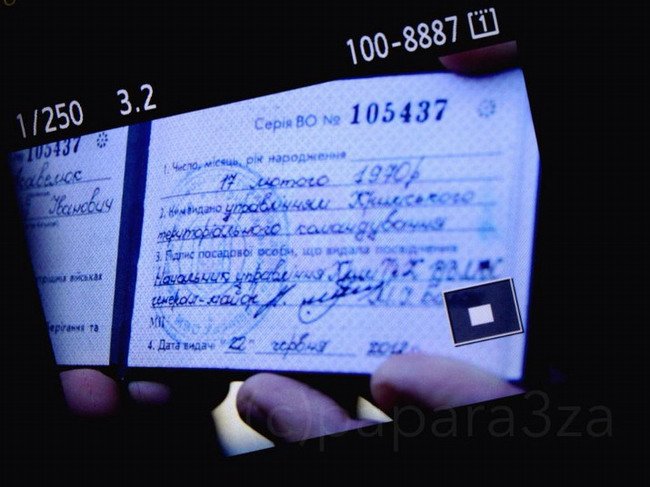 100-8887 1
1/250 3.2
105437
Іванович
військах
ерігання та
Серія ВО № 105437
1. Число, місяць, рік народження
17 лютого 1970р
2. Ким видано управлінням Кримського
територіального командування
3. Підпис посадової особи, що видала посвідчення
Начальник управління
генерал-майор
МП
4. Дата видачі "22" червня 2012
(c)papara3za